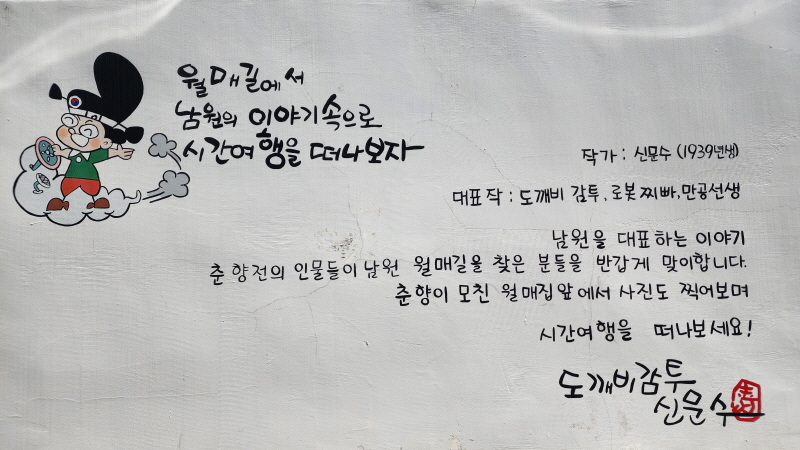 월매길에서
남원의 이야기속으로
시간여행을 떠나보자
작가 : 신문수 (1939년생)
대표작 : 도깨비 감투, 로봇찌빠, 만공선생
남원을 대표하는 이야기
춘향전의 인물들이 남원 월매길을 찾은 분들을 반갑게 맞이합니다.
춘향이 모친 월매집앞에서 사진도 찍어보며
시간여행을 떠나보세요!
도깨비감투
신문수